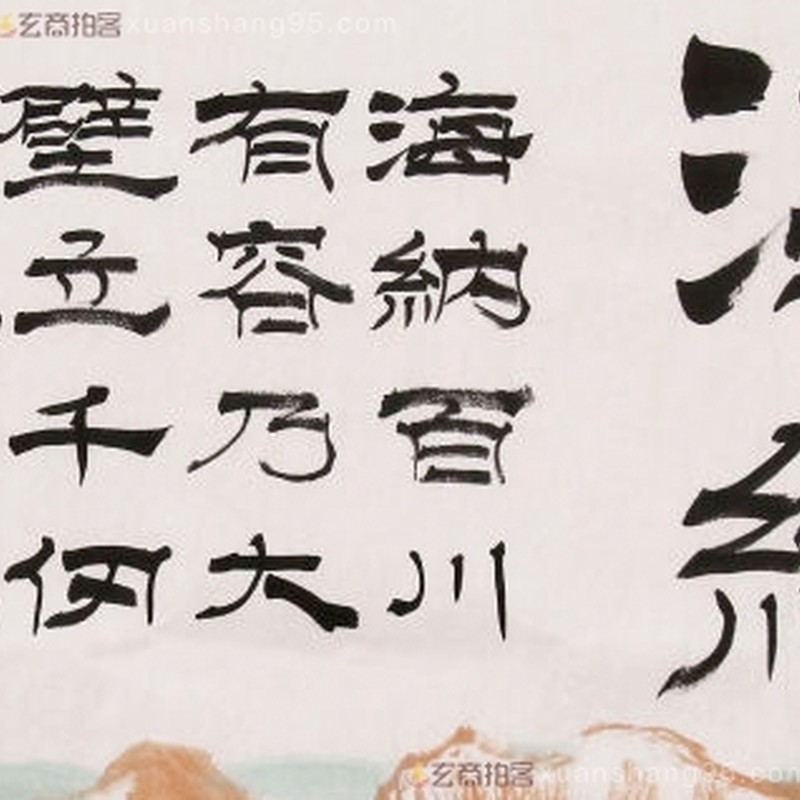 海納百川
有容乃大
壁立千仞
玄商拍客 xuanshang95.com
玄商拍客 xuanshang95.com